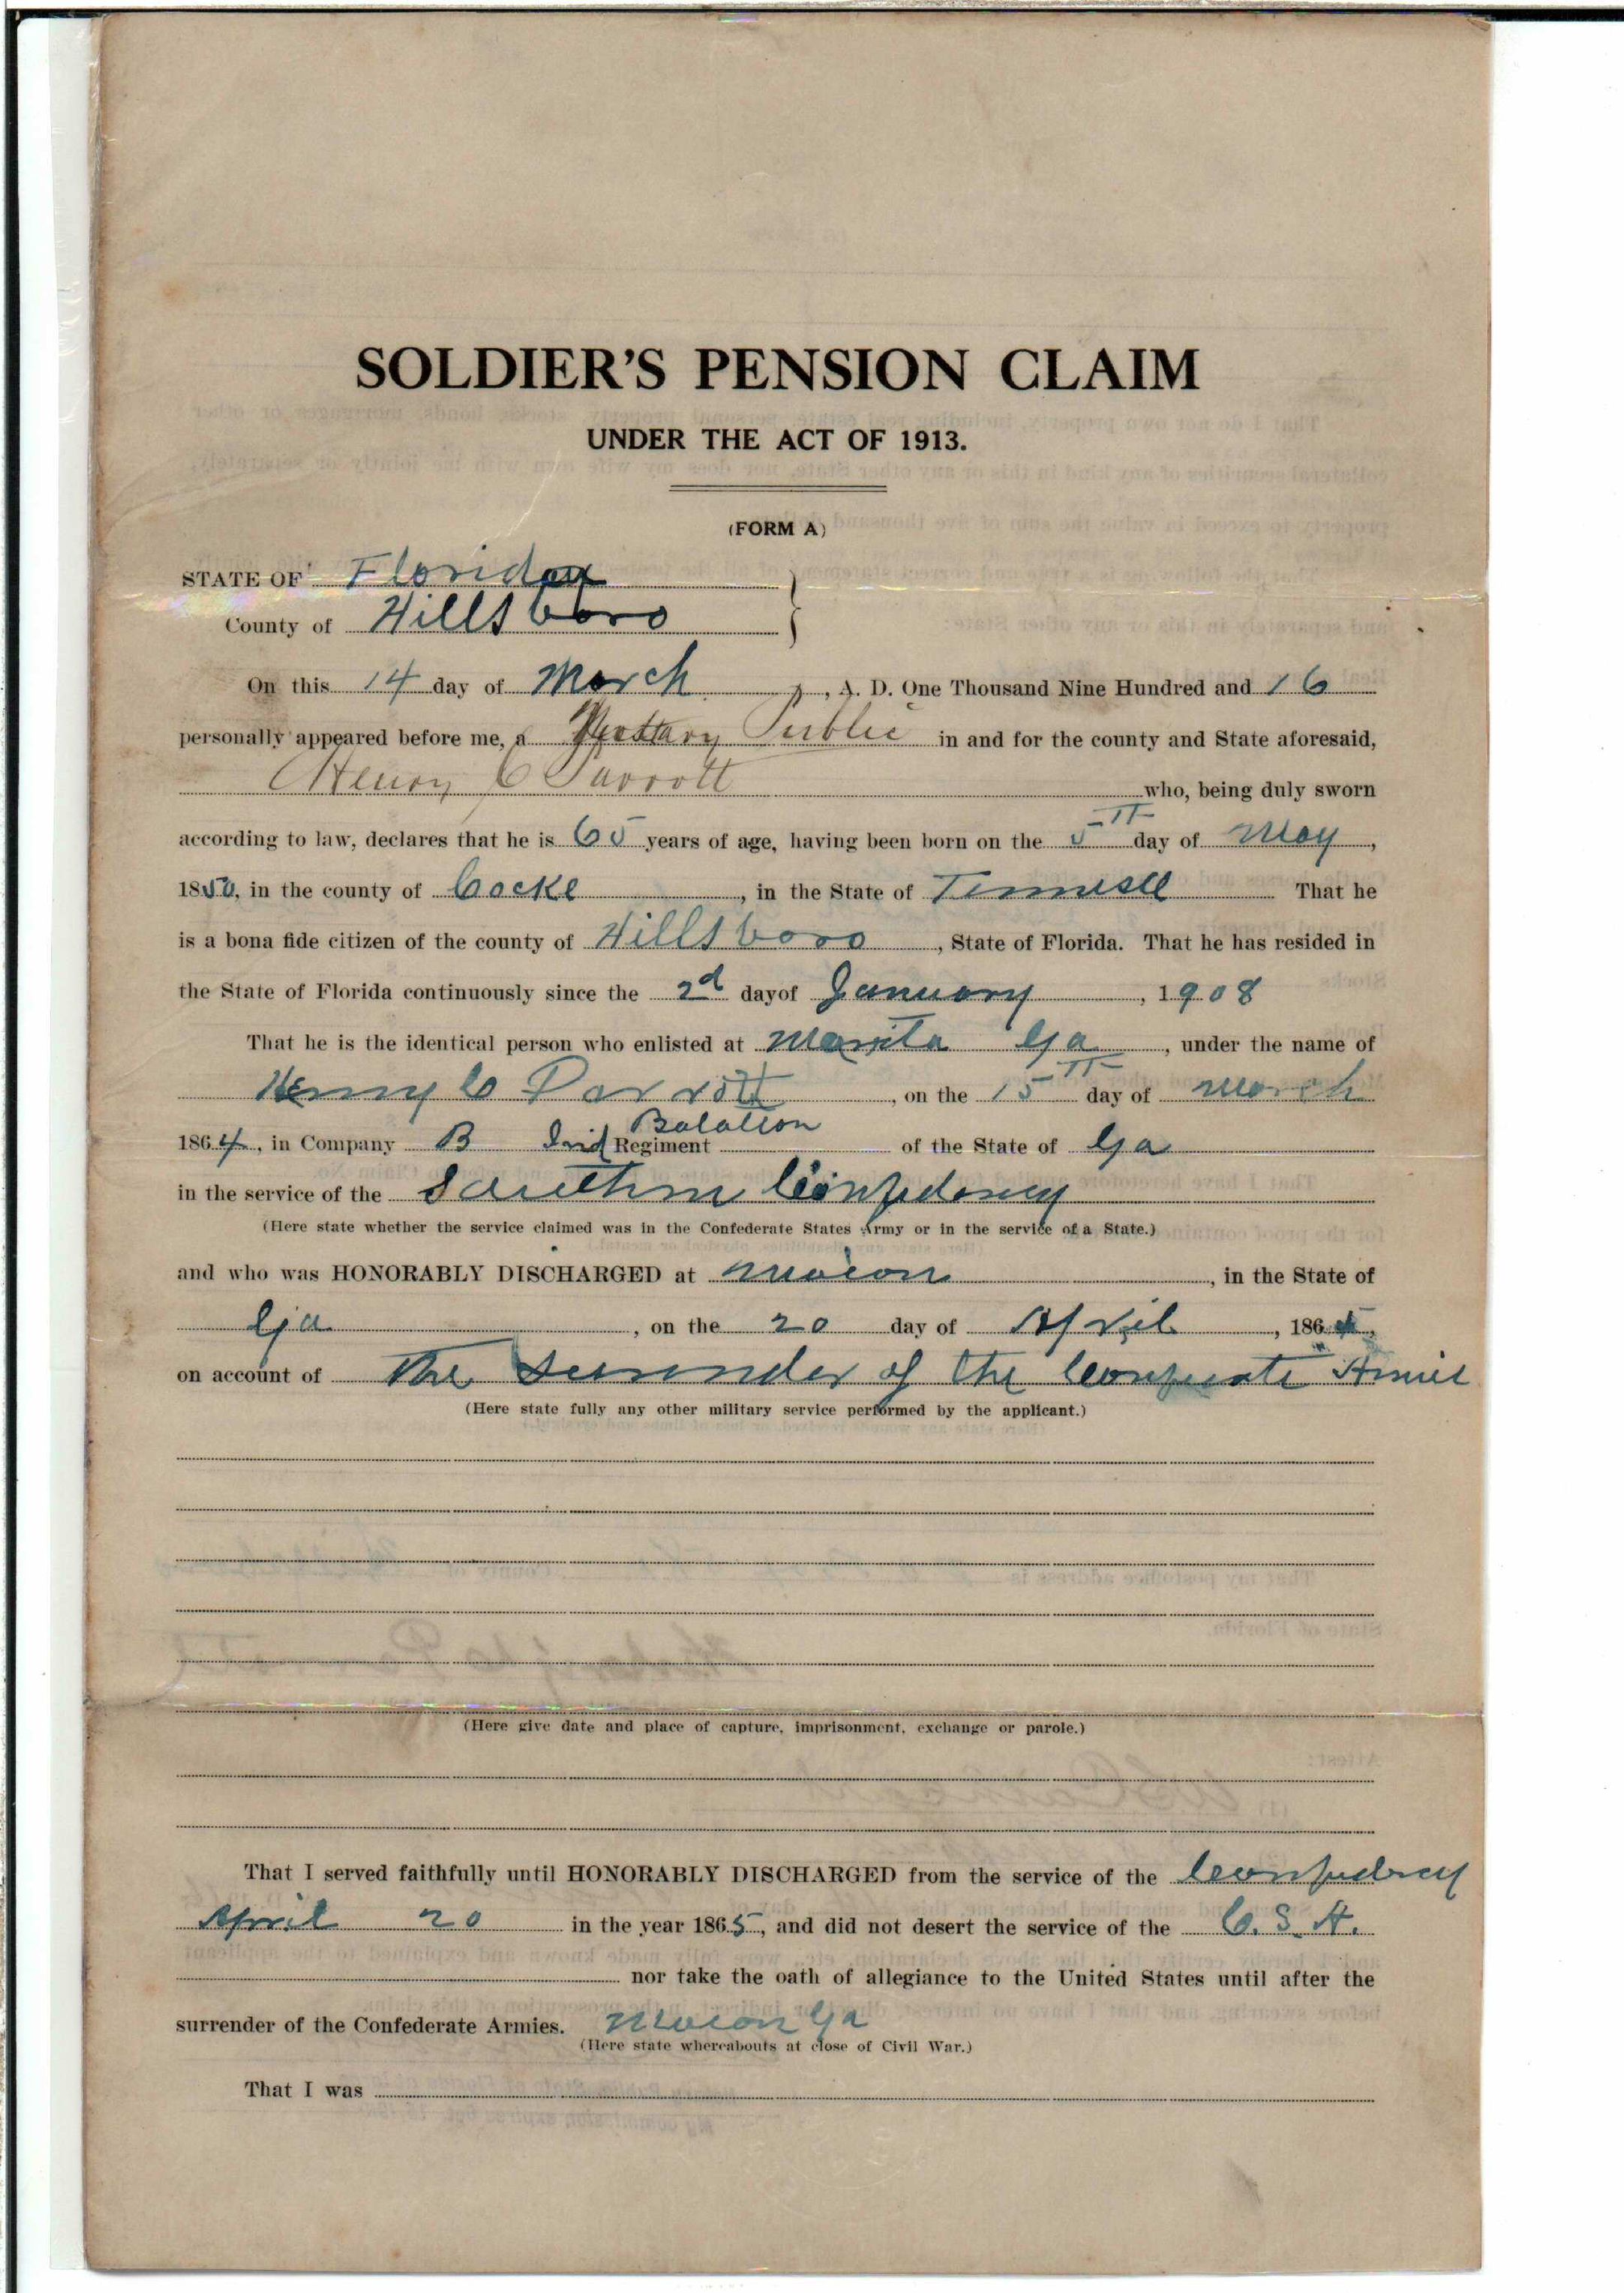 SOLDIER'S PENSION CLAIM
UNDER THE ACT OF 1913.
(FORM A)
STATE OF Florida
County of Hillsboro
On this 14 day of March, A. D. One Thousand Nine Hundred and 16
personally appeared before me, a Nottary Public in and for the county and State aforesaid,
Henry C Parrott who, being duly sworn
according to law, declares that he is 65 years of age, having been born on the 5th day of May,
1850, in the county of Cocke, in the State of Tennessee That he
is a bona fide citizen of the county of Hillsboro, State of Florida. That he has resided in
the State of Florida continuously since the 2d dayof January, 1908
That he is the identical person who enlisted at Ga, under the name of
Henry C Parrott, on the 15th day of March
1864, in Company B Regiment Batalion of the State of Ga
in the service of the Southern Confedercy
(Here state whether the service claimed was in the Confederate States Army or in the service of a State.)
and who was HONORABLY DISCHARGED at Macon, in the State of
Ga, on the 20 day of April, 1865,
on account of The Surender of the Armies
(Here state fully any other military service performed by the applicant.)
(Here give date and place of capture, imprisonment, exchange or parole.)
That I served faithfully until HONORABLY DISCHARGED from the service of the Confedrcy
April 20 in the year 1865, and did not desert the service of the C. S. A.
nor take the oath of allegiance to the United States until after the
surrender of the Confederate Armies. Macon Ga
(Here state whereabouts at close of Civil War.)
That I was